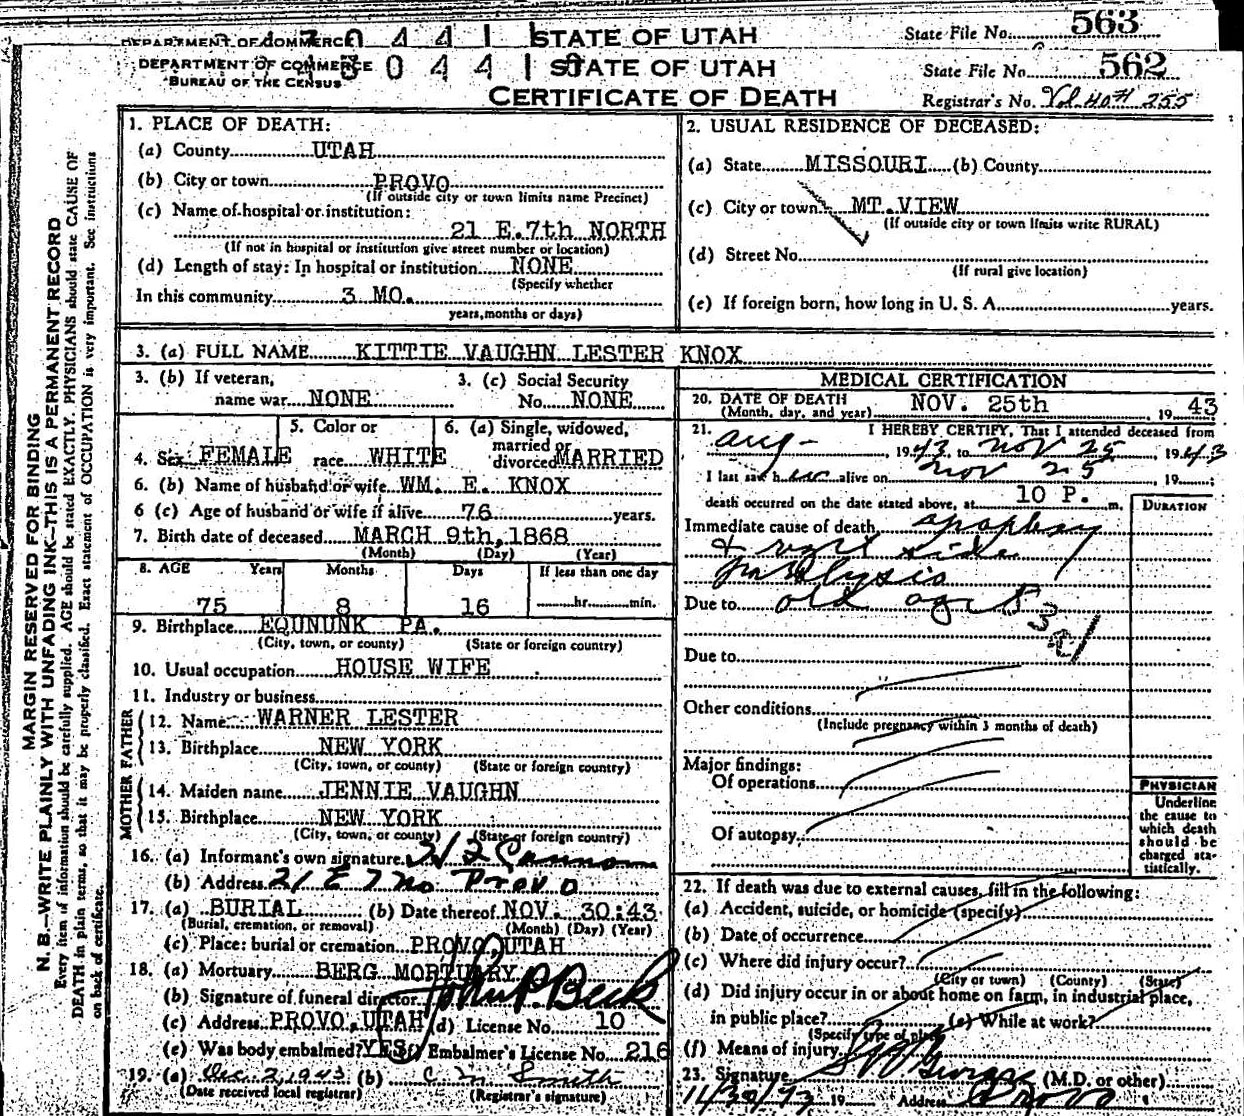 563
DEPARTMENT OF COMMERCE STATE OF UTAH State File No.
DEPARTMENT OF COMMERCE STATE OF UTAH State File No. 562
BUREAU OF THE CENSUS
CERTIFICATE OF DEATH Registrar's No. Vol 40 # 255
MARGIN RESERVED FOR BINDING
N. B.—WRITE PLAINLY WITH UNFADING INK—THIS IS A PERMANENT RECORD
Every item of information should be carefully supplied. AGE should be stated EXACTLY. PHYSICIANS should state CAUSE OF
DEATH in plain terms, so that it may be properly classified. Exact statement of OCCUPATION is very important. See instructions
on back of certificate.
1. PLACE OF DEATH:
(a) County UTAH
(b) City or town PROVO
(If outside city or town limits name Precinct)
(c) Name of hospital or institution:
21 E. 7th NORTH
(If not in hospital or institution give street number or location)
(d) Length of stay: In hospital or institution NONE
(Specify whether
In this community 3 MO.
years, months or days)
2. USUAL RESIDENCE OF DECEASED:
(a) State MISSOURI (b) County
(c) City or town MT. VIEW
(If outside city or town limits write RURAL)
(d) Street No.
(If rural give location)
(e) If foreign born, how long in U. S. A. years.
3. (a) FULL NAME KITTIE VAUGHN LESTER KNOX
3. (b) If veteran, 3. (c) Social Security
name war NONE No. NONE
5. Color or 6. (a) Single, widowed,
married or
4. Sex FEMALE race WHITE divorced MARRIED
6. (b) Name of husband or wife WM. E. KNOX
6 (c) Age of husband or wife if alive 76 years.
7. Birth date of deceased MARCH 9th, 1868
(Month) (Day) (Year)
8. AGE Years Months Days If less than one day
75 8 16 hr. min.
9. Birthplace EQUNUNK PA.
(City, town, or county) (State or foreign country)
10. Usual occupation HOUSE WIFE
11. Industry or business
FATHER
12. Name WARNER LESTER
13. Birthplace NEW YORK
(City, town, or county) (State or foreign country)
MOTHER
14. Maiden name JENNIE VAUGHN
15. Birthplace NEW YORK
(City, town, or county) (State or foreign country)
16. (a) Informant's own signature Cannon
(b) Address 21 E 7 No Provo
17. (a) BURIAL (b) Date thereof NOV. 30:43
(Burial, cremation, or removal) (Month) (Day) (Year)
(c) Place: burial or cremation PROVO, UTAH
18. (a) Mortuary BERG MORTUARY
(b) Signature of funeral director John P. Beck
(c) Address PROVO, UTAH (d) License No. 10
(e) Was body embalmed? YES (f) Embalmer's License No. 216
19. (a) Dec. 2, 1943 (b) C M Smith
(Date received local registrar) (Registrar's signature)
MEDICAL CERTIFICATION
20. DATE OF DEATH
(Month, day, and year) NOV. 25th, 19 43
21. I HEREBY CERTIFY, That I attended deceased from
Aug- , 1943 to Nov 25, 1943
I last saw her alive on Nov 25, 19 ;
death occurred on the date stated above, at 10 P. m. DURATION
Immediate cause of death apoplexy
& right side
paralysis
Due to old age
Due to
Other conditions
(Include pregnancy within 3 months of death)
Major findings:
Of operations
Of autopsy
PHYSICIAN
Underline
the cause to
which death
should be
charged sta-
tistically.
22. If death was due to external causes, fill in the following:
(a) Accident, suicide, or homicide (specify)
(b) Date of occurrence
(c) Where did injury occur?
(City or town) (County) (State)
(d) Did injury occur in or about home on farm, in industrial place,
in public place? (e) While at work?
(Specify type of place)
(f) Means of injury
23. Signature (M.D. or other)
11/30/43 19 Address Provo